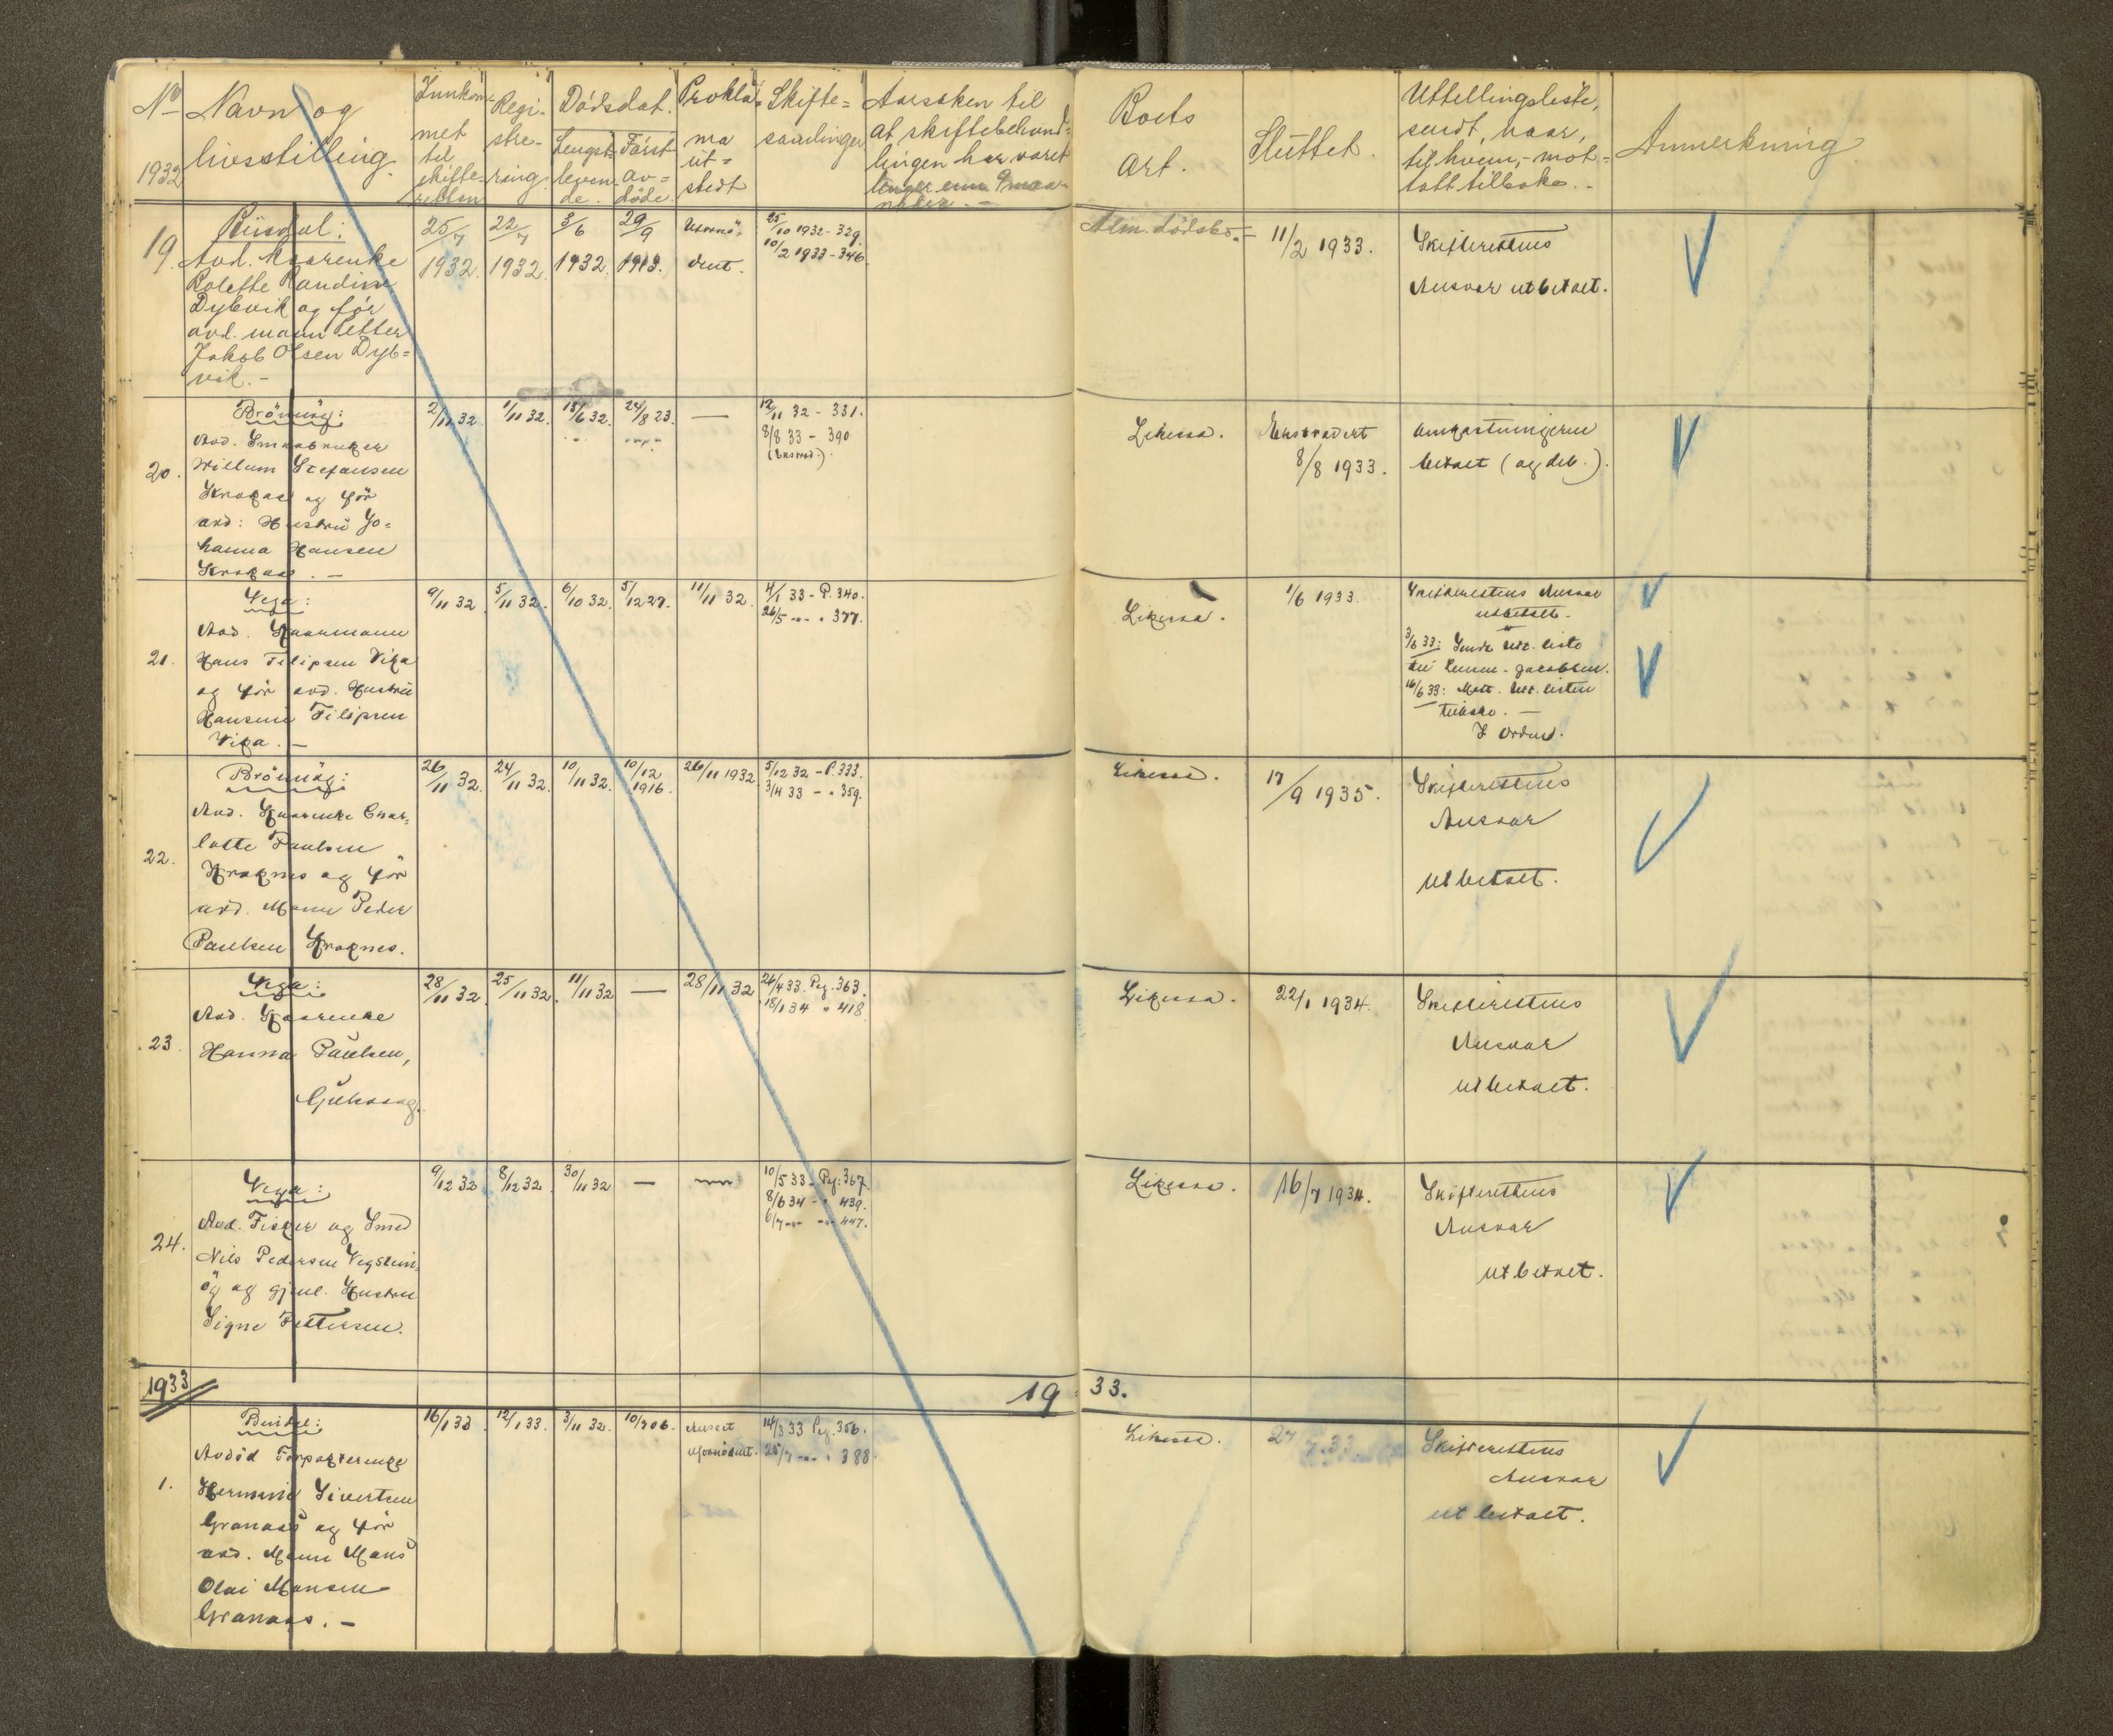 No
1932
Navn og
livsstilling.
Innkom-
met
til
skifte-
retten
Regi-
stre-
ring.
Dödsdat.
Lengst-
leven-
de.
Först
av-
döde.
Prokla-
ma
üt=
stedt
Skifte=
samlinger
Aarsaken til
at skiftebehand=
lingen har varet
lenger enn 9 maa-
neder. -
Boets
art.
Slüttet.
Uttellingsliste,
sendt, naar,
til hvem, - mot-
tatt tilbake. -
Anmerkning
19
Bindal:
Avd. Kaarenke
Rolette Randine
Dybvik og för
avd. mann Petter
Jakob Olsen Dyb=
vik. -
25/7
1932.
22/7
1932.
3/6
1932.
29/9
1913.
Unnö-
dvent.
25/10 1932 - 329.
10/2 1933 - 346.
Alm. dödsbo.
11/2 1933.
Skifterettens
Ansvar utbetalt.
20.
Brönnöy:
Avd. Smaabruker
Willum Stefansen
og för
avd: Hustru Jo=
hanna Hansen
2/11 32.
1/11 32.
13/6 32.
24/8 23.
—
12/11 32 - 331.
8/8 33 - 390
Likessa.
8/8 1933.
betalt (og deb.).
21.
Vega:
Avd. Kaarmann
Hans Filipsen Vika
og för avd. Hustru
Hansine Filipsen
Vika. -
9/11 32
5/11 32.
6/10 32.
5/12 27.
11/11 32.
4/1 33 - P. 340.
26/5 -"- " 377.
Likessa.
1/6 1933.
Skifterettens Ansvar
utbetalt.
3/6 33: Sendt utl. liste
til Lensm. Jacobsen.
16/6 33: Mott. utl. listen
tilbake. -
I orden.
22.
Brönnöy:
Avd. Kaarenke Char-
lotte Paulsen
Kraknes og för
avd. Mann Peder
Paulsen Kraknes.
26/11 32.
24/11 32.
10/11 32.
10/12
1916.
26/11 1932
5/12 32 - P. 333.
3/4 33 - " 359.
Likessa.
17/9 1935.
Skifterettens
Ansvar
utbetalt.
23
Vega:
Avd. Kaarenke
Hanna Paulsen,
28/11 32.
25/11 32.
11/11 32
—
28/11 32
26/4 33. Pg. 363.
18/1 34 " 418
Likessa.
22/1 1934.
Skifterettens
Ansvar
utbetalt.
24.
Vega:
Avd. Fisker og Smed
Nils Pedersen Vegstein-
öy og gjenl. Hustru
Signe Pettersen.
9/12 32
8/12 32
30/11 32
—
10/5 33 - Pg. 367.
8/6 34 - " 439.
6/7 -"- -"- 447.
Likessa.
16/7 1934.
Skifterettens
Ansvar
utbetalt.
1933
19 33.
1.
Bindal:
Avdöd Forpakterenke
Hermine Sivertsen
Granaas og för
avd. Mann Mons
Olai Monsen
Granaas. -
16/1 33
12/1 33.
3/11 32.
10/7 06.
Ansett
14/3 33 Pg. 356.
25/7 -"- " 388
Likessa.
Skifterettens
Ansvar
utbetalt.